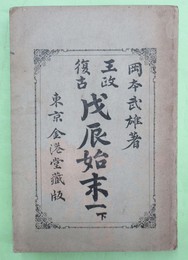 岡本武雄著
王政
復古
戊辰始末 一下
東京金港堂藏版